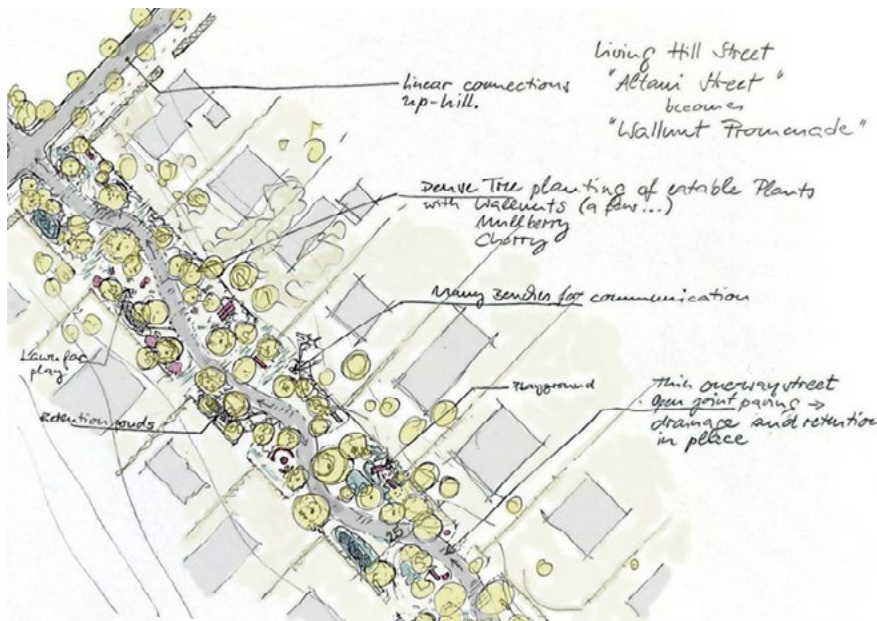 Living Hill Street
"Altani Street"
becomes
"Wallnut Promenade"
Linear connections
up-hill.
Dense Tree planting of eatable Plants
with Wallnuts (a few...)
Mullberry
Cherry
Many Benches for communication
Lawn for
play
Playground
Thin one way street
Open joint paving →
drainage and retention
in place
Retention ponds
25